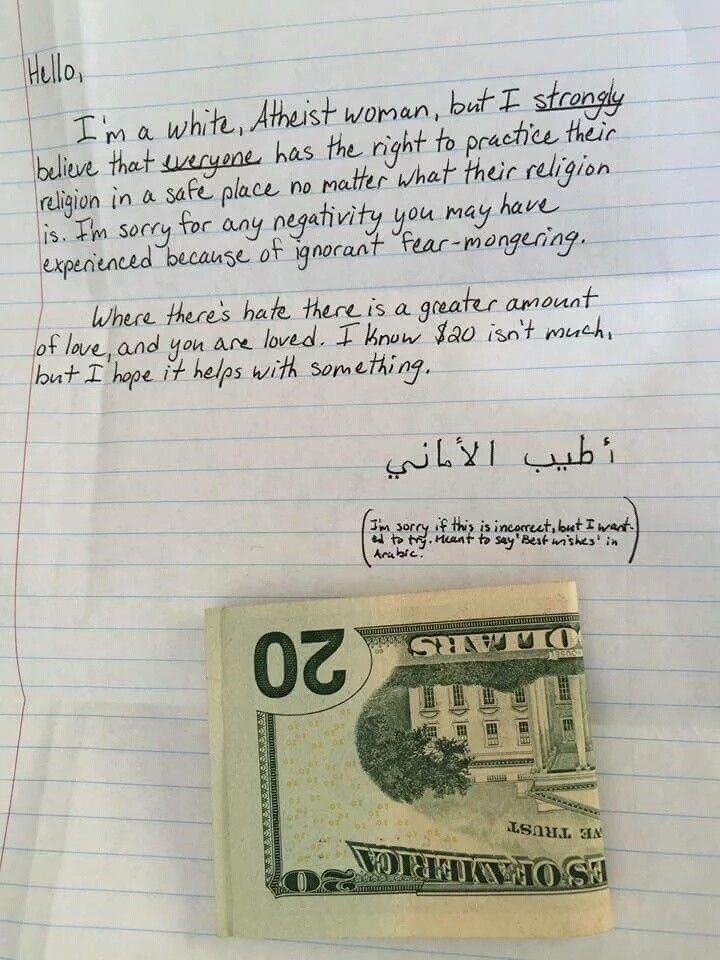 Hello,
I'm a white, Atheist woman, but I strongly
believe that everyone has the right to practice their
religion in a safe place no matter what their religion
is. I'm sorry for any negativity you may have
experienced because of ignorant fear-mongering.
Where there's hate there is a greater amount
of love, and you are loved. I know $20 isn't much,
but I hope it helps with something.
أطيب الأماني
(I'm sorry if this is incorrect, but I want-
ed to try. Meant to say 'Best wishes' in
Arabic.)
20
DOLLARS
WE TRUST
ES OF AMERICA
20